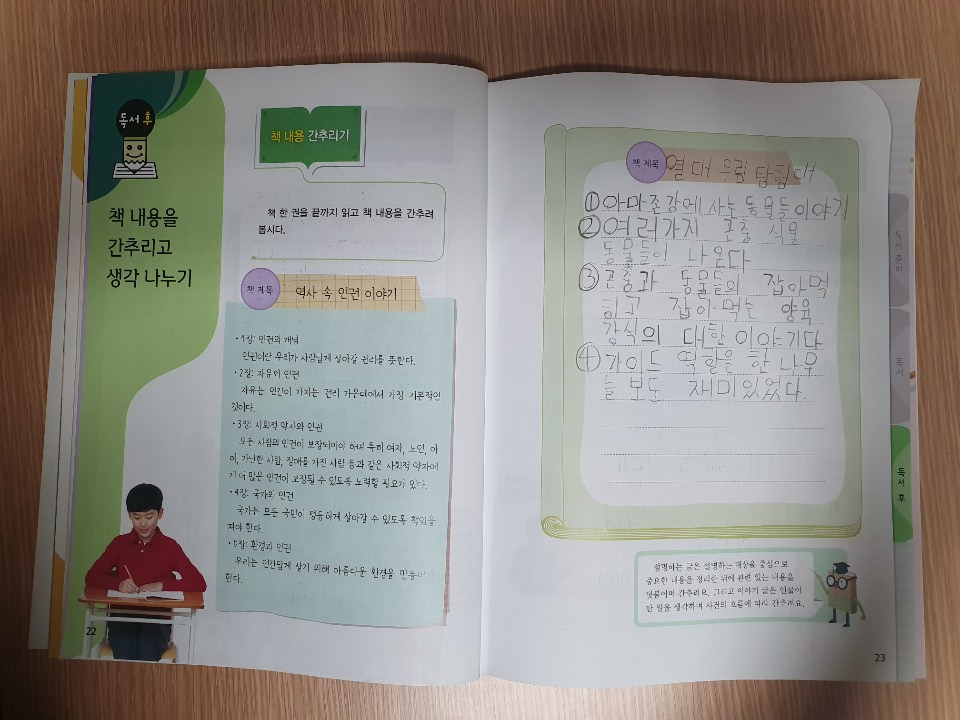 독서 후
책 내용을
간추리고
생각 나누기
22
책 내용 간추리기
책 한 권을 끝까지 읽고 책 내용을 간추려
봅시다.
책 제목 역사 속 인권 이야기
• 1장: 인권의 개념
인권이란 우리가 사람답게 살아갈 권리를 뜻한다.
• 2장: 자유와 인권
자유는 인간이 가지는 권리 가운데에서 가장 기본적인
것이다.
• 3장: 사회적 약자와 인권
모든 사람의 인권이 보장되어야 하며 특히 여자, 노인, 아
이, 가난한 사람, 장애를 가진 사람 등과 같은 사회적 약자에
게 더 많은 인권이 보장될 수 있도록 노력할 필요가 있다.
• 4장: 국가와 인권
국가는 모든 국민이 평등하게 살아갈 수 있도록 책임을
져야 한다.
• 5장: 환경과 인권
우리는 인간답게 살기 위해 아름다운 환경을 만들어야
한다.
책 제목 열대 우림 탐험대
① 아마존강에 사는 동물들이야기
② 여러가지 곤충 식물
동물들이 나온다
③ 곤충과 동물들의 잡아먹
히고 잡아먹는 양육
강식의 대한 이야기다
④ 가이드 역할을 한 나무
늘보도 재미있었다.
설명하는 글은 설명하는 대상을 중심으로
중요한 내용을 정리한 뒤에 관련 있는 내용을
덧붙이며 간추려요. 그리고 이야기 글은 인물이
한 일을 생각하며 사건의 흐름에 따라 간추려요.
23
독서 준비
독서
독서 후